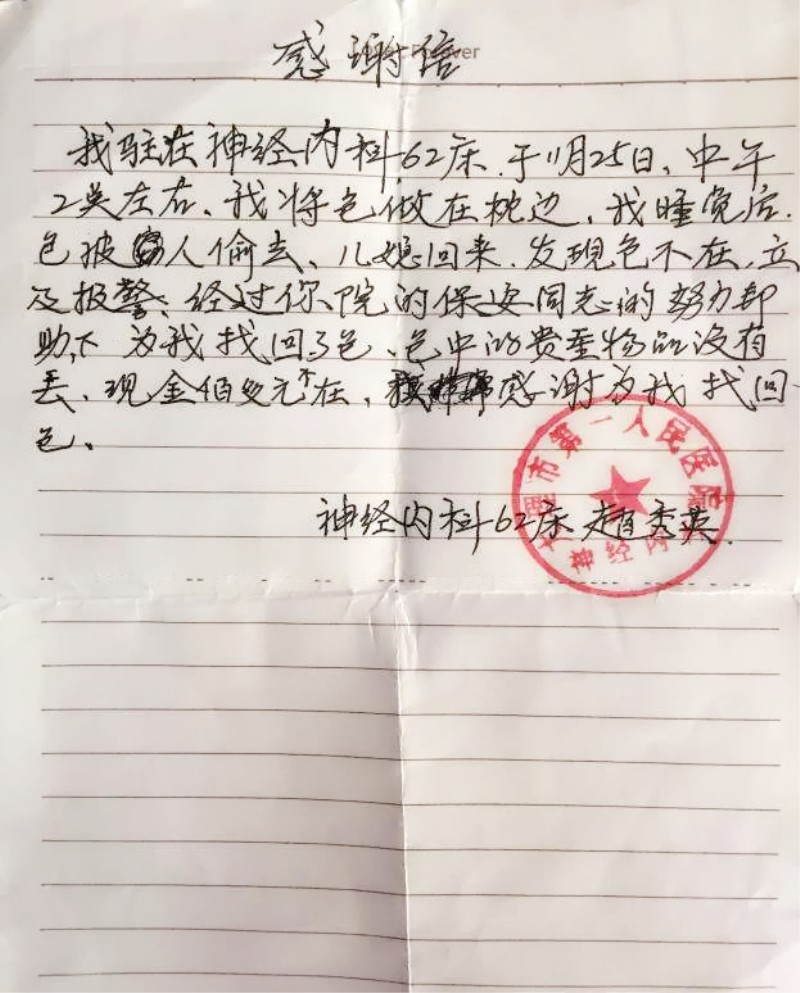 感谢信
我驻在神经内科62床.于11月25日、中午
2点左右、我将包做在枕边、我睡觉后.
包被人偷去、儿媳回来.发现包不在.立
及报警、经过你院的保安同志的努力帮
助下 为我找回了包、包中的贵重物品没有
丢、现金佰多元不在,感谢为我找回
包、
神经内科62床 赵秀英
市第一人民医院
神经内